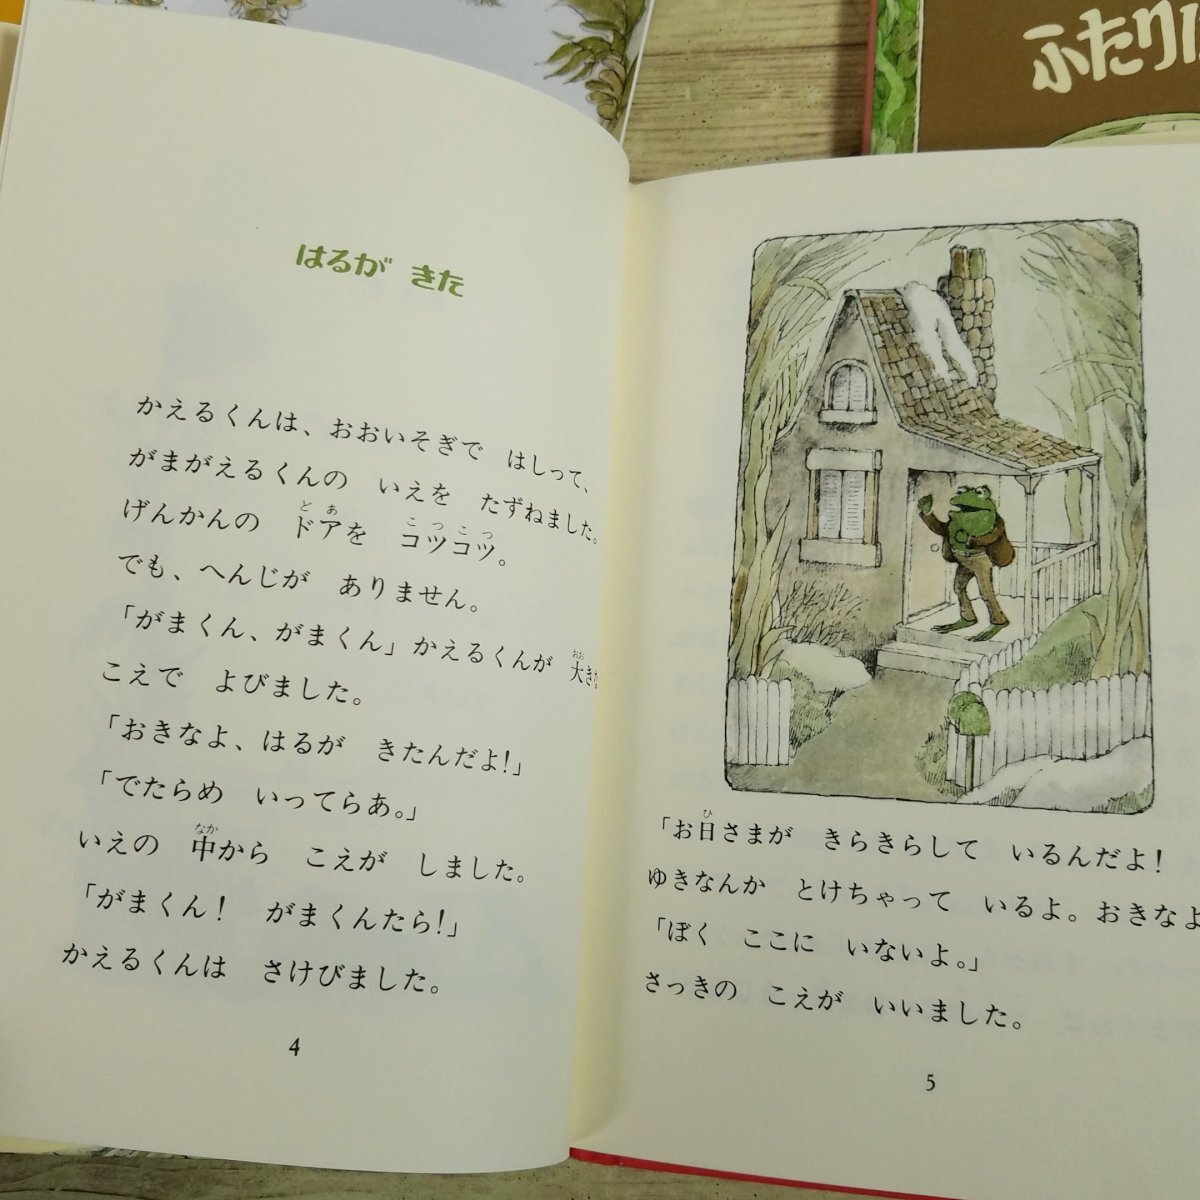 ふたりは
はるが きた
かえるくんは、おおいそぎで はしって、
がまがえるくんの いえを たずねました。
げんかんの ドアを コツコツ。
でも、へんじが ありません。
「がまくん、がまくん」かえるくんが 大きな
こえで よびました。
「おきなよ、はるが きたんだよ!」
「でたらめ いってらあ。」
いえの 中から こえが しました。
「がまくん! がまくんたら!」
かえるくんは さけびました。
4
「お日さまが きらきらして いるんだよ!
ゆきなんか とけちゃって いるよ。おきなよ
「ぼく ここに いないよ。」
さっきの こえが いいました。
5